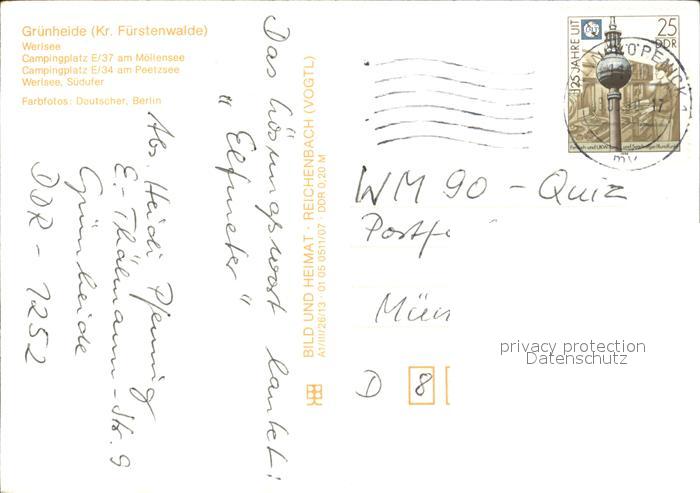 Grünheide (Kr. Fürstenwalde)
Werlsee
Campingplatz E/37 am Möllensee
Campingplatz E/34 am Peetzsee
Werlsee, Südufer
Farbfotos: Deutscher, Berlin
Das Lösungswort lautet:
"Elfmeter"
Abs. Heidi Pfennig
E.-Thälmann-Str. 9
Grünheide
DDR - 1252
BILD UND HEIMAT · REICHENBACH (VOGTL)
A1/III/26/13 · 01 05 0511/07 DDR 0,20 M
125 JAHRE UIT
25
DDR
WM 90 - Quiz
Postf
Mün
D 8
privacy protection
Datenschutz